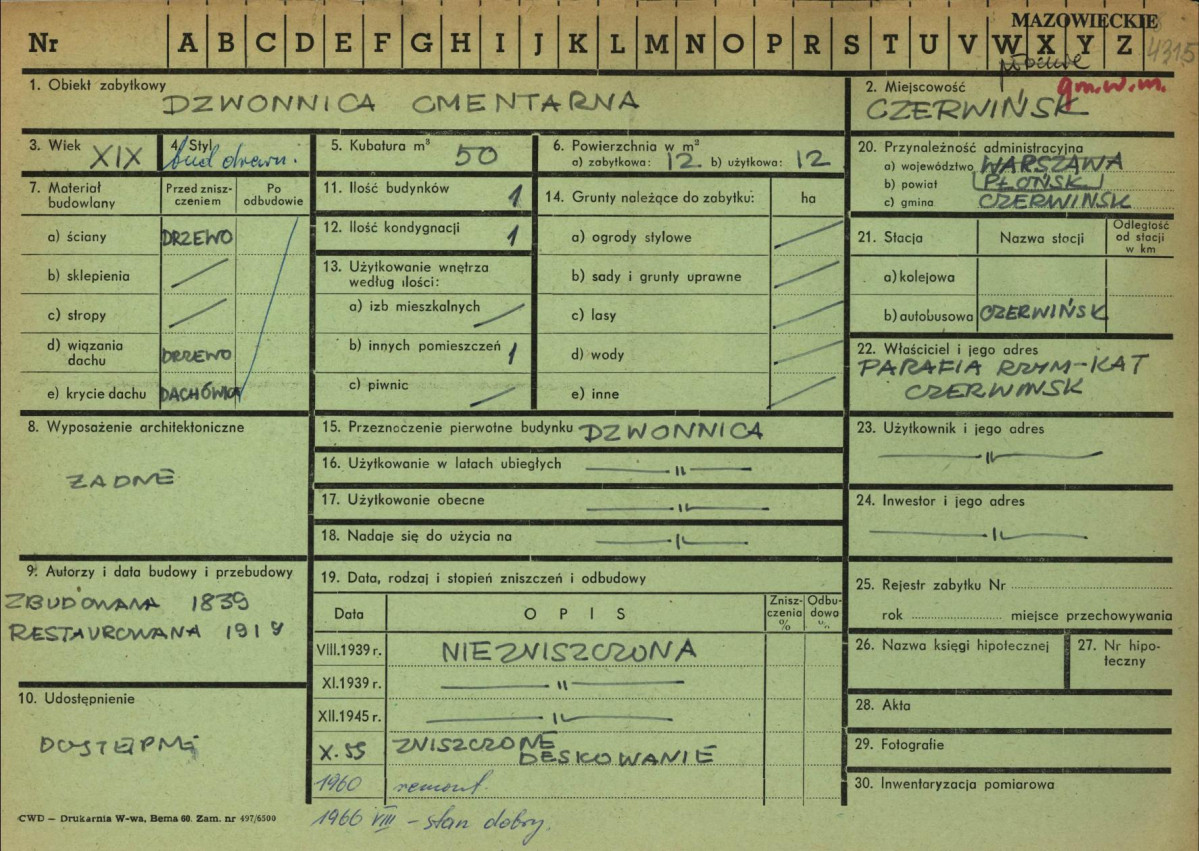 MAZOWIECKIE
Nr A B C D E F G H I J K L M N O P R S T U V W X Y Z
4315
płockie
1. Obiekt zabytkowy
DZWONNICA CMENTARNA
2. Miejscowość gm.w.m.
CZERWIŃSK
3. Wiek XIX
4. Styl
bud drewn.
5. Kubatura m³ 50
6. Powierzchnia w m²
a) zabytkowa: 12 b) użytkowa: 12
20. Przynależność administracyjna
a) województwo WARSZAWA
b) powiat PŁOŃSK
c) gmina CZERWIŃSK
7. Materiał budowlany
Przed zniszczeniem
Po odbudowie
a) ściany DRZEWO
b) sklepienia
c) stropy
d) wiązania dachu DRZEWO
e) krycie dachu DACHÓWKA
11. Ilość budynków 1
12. Ilość kondygnacji 1
13. Użytkowanie wnętrza według ilości:
a) izb mieszkalnych
b) innych pomieszczeń 1
c) piwnic
14. Grunty należące do zabytku: ha
a) ogrody stylowe
b) sady i grunty uprawne
c) lasy
d) wody
e) inne
21. Stacja Nazwa stacji Odległość od stacji w km
a) kolejowa
b) autobusowa CZERWIŃSK
22. Właściciel i jego adres
PARAFIA RZYM-KAT
CZERWIŃSK
8. Wyposażenie architektoniczne
ŻADNE
15. Przeznaczenie pierwotne budynku DZWONNICA
16. Użytkowanie w latach ubiegłych — " —
17. Użytkowanie obecne — " —
18. Nadaje się do użycia na — " —
23. Użytkownik i jego adres
— " —
24. Inwestor i jego adres
— " —
9. Autorzy i data budowy i przebudowy
ZBUDOWANA 1839
RESTAUROWANA 1919
19. Data, rodzaj i stopień zniszczeń i odbudowy
Data OPIS Zniszczenia % Odbudowa %
VIII.1939 r. NIEZNISZCZONA
XI.1939 r. — " —
XII.1945 r. — " —
X.55 ZNISZCZONE
DESKOWANIE
1960 remont.
1966 VIII – stan dobry.
25. Rejestr zabytku Nr
rok miejsce przechowywania
26. Nazwa księgi hipotecznej
27. Nr hipoteczny
28. Akta
29. Fotografie
30. Inwentaryzacja pomiarowa
10. Udostępnienie
DOSTĘPNE
CWD – Drukarnia W-wa, Bema 60. Zam. nr 497/6500